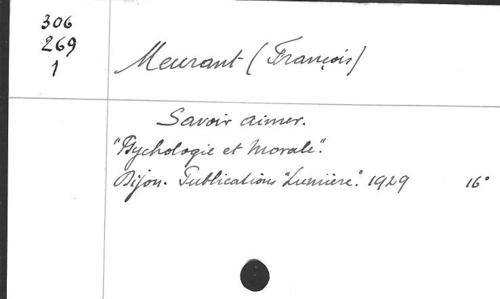 306
269
1
Meurant (François)
Savoir aimer.
"Psychologie et Morale".
Dijon. Publications "Lumière". 1929 16°